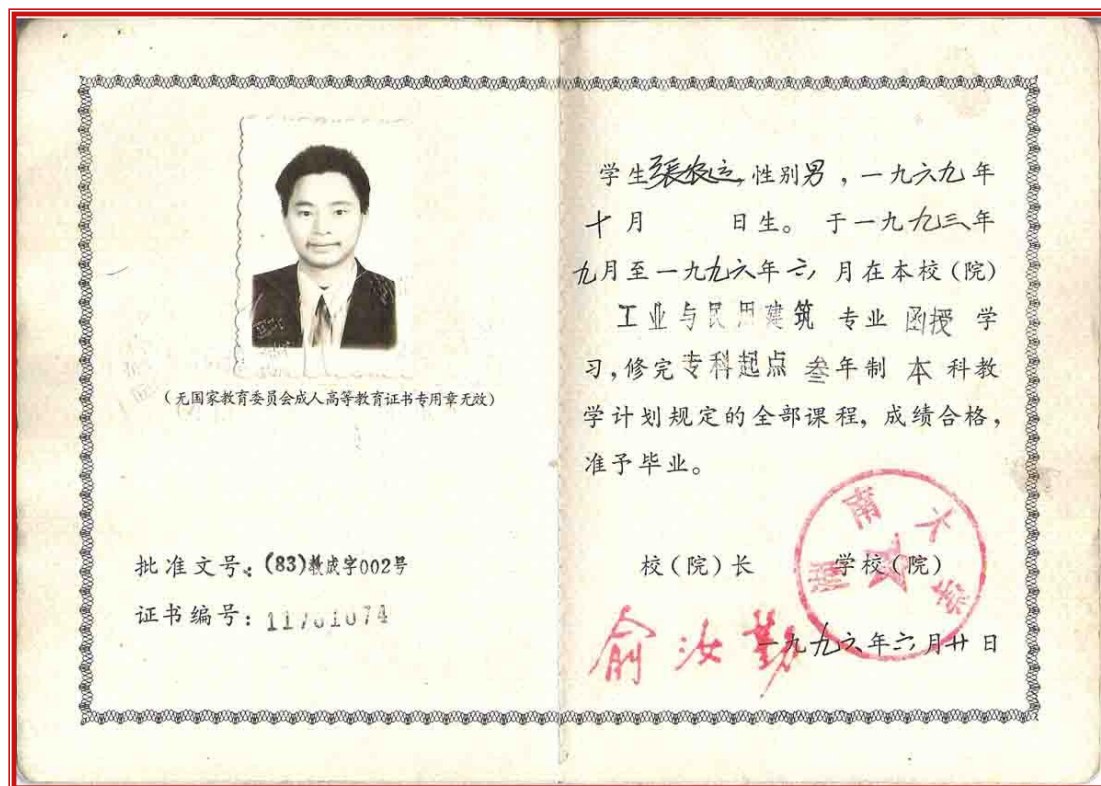 (无国家教育委员会成人高等教育证书专用章无效)
批准文号: (83)教成字002号
证书编号:
学生張农运,性别男,一九六九年
十月 日生。于一九九三年
九月至一九九六年六月在本校(院)
工业与民用建筑 专业 函授 学
习,修完专科起点 叁年制 本 科教
学计划规定的全部课程,成绩合格,
准予毕业。
湖南大学
校(院)长 学校(院)
俞汝勤
一九九六年六月廿日